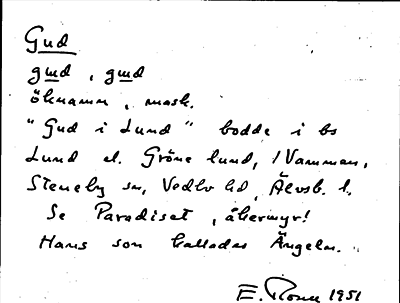 Gud
gud, gud
öknamn, mask.
"Gud i Lund" bodde i bs
Lund el. Gröne lund, i Vammen,
Steneby sn, Vedbo hd, Älvsb. l.
Se Paradiset, åkermyr!
Hans son kallades Ängeln.
E. 1951